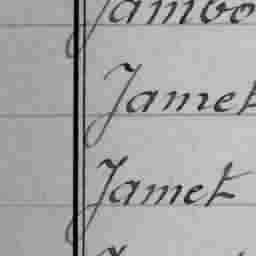 Jambo
Jamet
Jamet